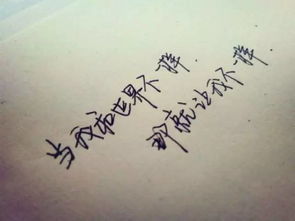 当我和世界不一样.
那就让我不一样.